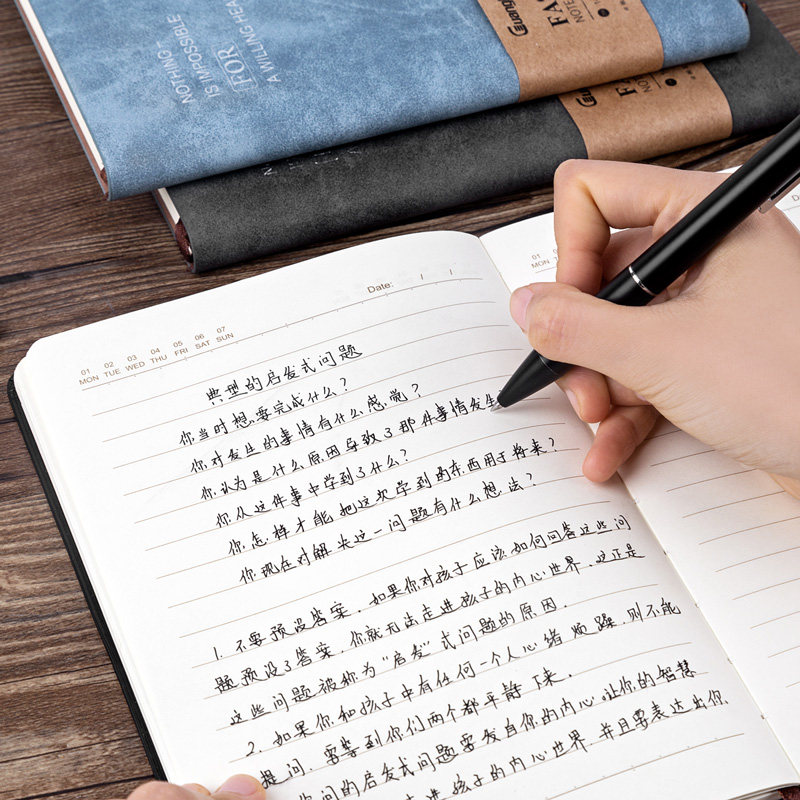 NOTHING
IS IMPOSSIBLE
FOR
A WILLING HEA
Guang
FAS
NOTE
Guang
FA
NOT
Date: / /
01 02 03 04 05 06 07
MON TUE WED THU FRI SAT SUN
01
MON
典型的启发式问题
你当时想要完成什么？
你对发生的事情有什么感觉？
你认为是什么原因导致了那件事情发生
你从这件事中学到了什么？
你怎样才能把这次学到的东西用于将来？
你现在对解决这一问题有什么想法？
1. 不要预设答案. 如果你对孩子应该如何回答这些问
题预设了答案, 你就无法走进孩子的内心世界. 这正是
这些问题被称为"启发"式问题的原因.
2. 如果你和孩子中有任何一个人心绪烦躁, 则不能
提问. 要等到你们两个都平静下来.
你问的启发式问题要发自你的内心. 让你的智慧
走进孩子的内心世界. 并且要表达出你